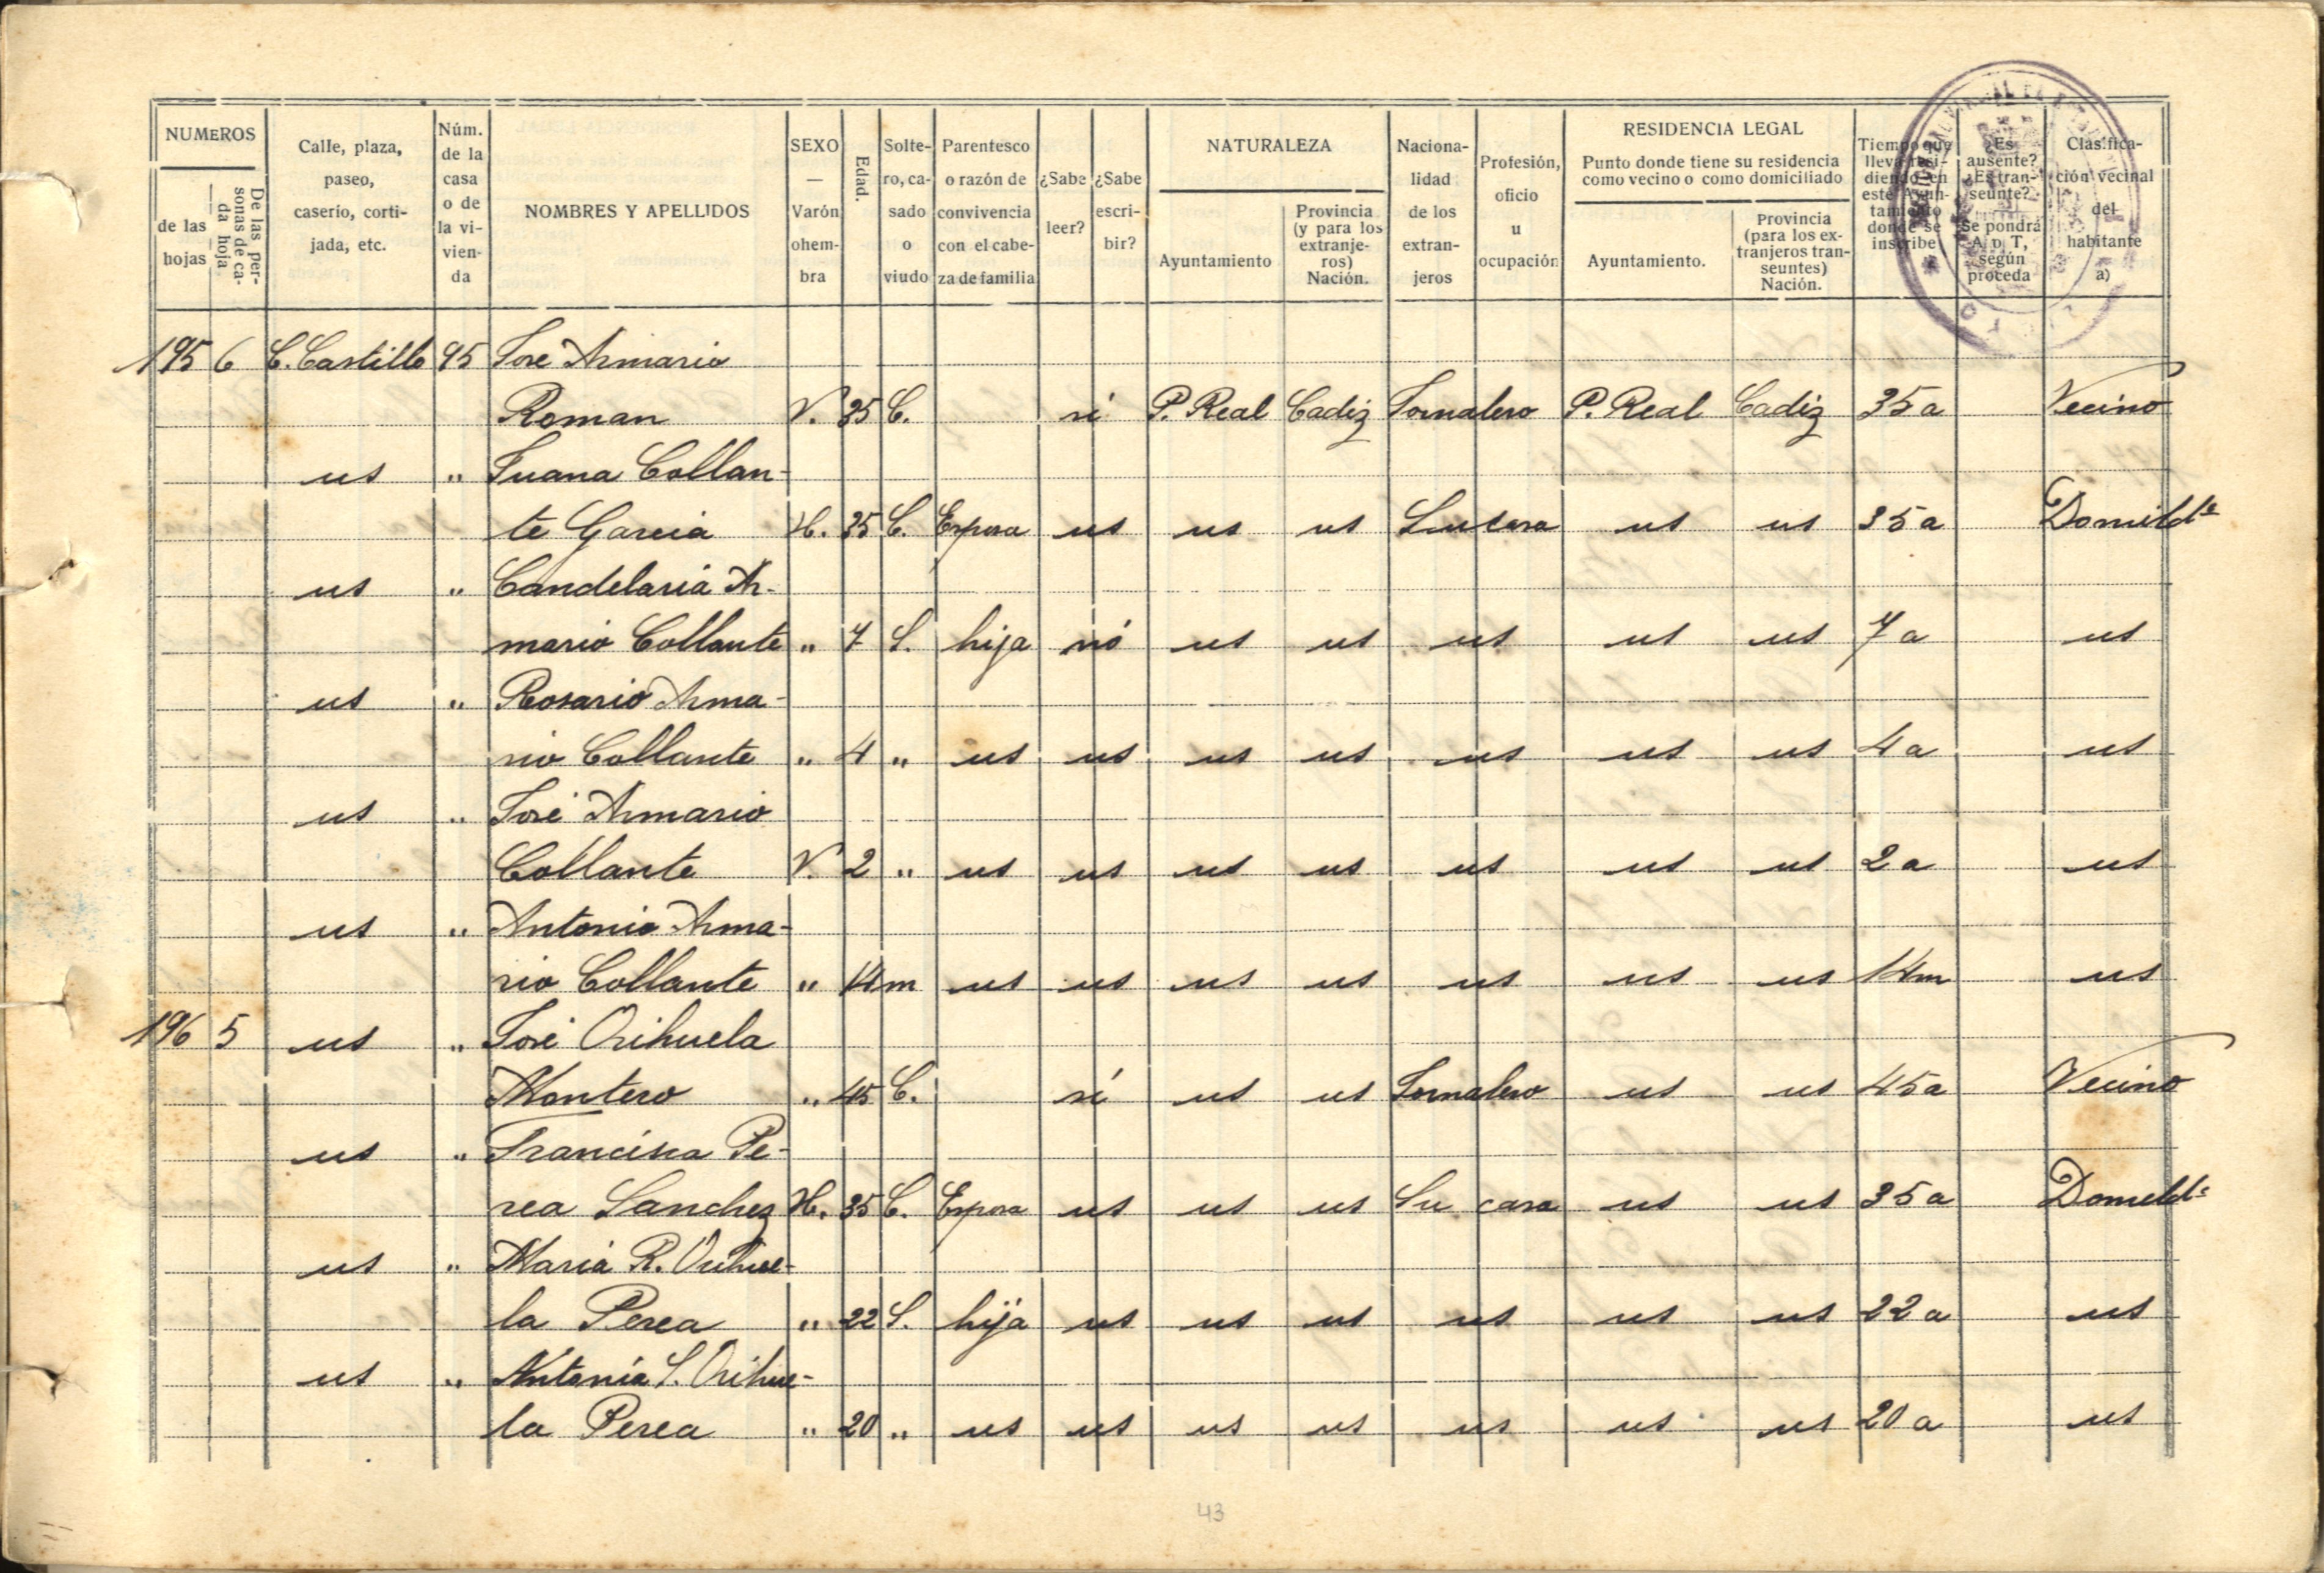 NUMEROS
de las hojas
De las personas de cada hoja
Calle, plaza, paseo, caserío, cortijada, etc.
Núm. de la casa o de la vivienda
NOMBRES Y APELLIDOS
SEXO — Varón ohembra
Edad.
Soltero, casado o viudo
Parentesco o razón de convivencia con el cabeza de familia
¿Sabe leer?
¿Sabe escribir?
NATURALEZA
Ayuntamiento
Provincia (y para los extranjeros) Nación.
Nacionalidad de los extranjeros
Profesión, oficio u ocupación
RESIDENCIA LEGAL
Punto donde tiene su residencia como vecino o como domiciliado
Ayuntamiento.
Provincia (para los extranjeros transeuntes) Nación.
Tiempo que lleva residiendo en este Ayuntamiento donde se inscribe
¿Es ausente? ¿Es transeunte? Se pondrá A o T, según proceda
Clasificación vecinal del habitante a)
195 6 C. Castillo 95 Jose Armario
Roman V. 35 C. sí P. Real Cadiz Jornalero P. Real Cadiz 35 a Vecino
us " Juana Collan-
te Garcia H. 35 C. Esposa us us us Su casa us us 35 a Domildª
us " Candelaria Ar-
mario Collante " 7 S. hija nó us us us us us 7 a us
us " Rosario Arma-
rio Collante " 4 " us us us us us us us 4 a us
us " José Armario
Collante V. 2 " us us us us us us us 2 a us
us " Antonio Arma-
rio Collante " 14m us us us us us us us 14m us
196 5 us " José Orihuela
Montero " 45 C. sí us us Jornalero us us 45 a Vecino
us " Francisca Pe-
rea Sanchez H. 35 C. Esposa us us us Su casa us us 35 a Domildª
us " Maria R. Orihue-
la Perea " 22 S. hija us us us us us us 22 a us
us " Antonia S. Orihue-
la Perea " 20 " us us us us us us us 20 a us
43